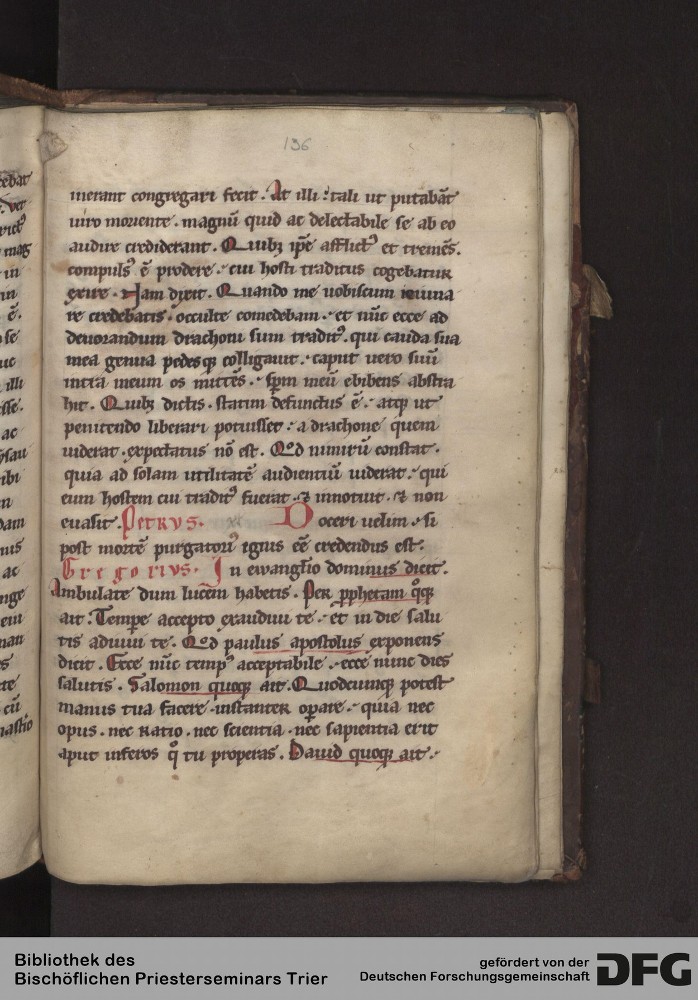 136
nerant congregari fecit. At illi : tali ut putabāt
uiro moriente. magnū quid ac delectabile se ab eo
audire crediderant. Quibꝫ ip̄e afflictꝰ et tremēs.
compulsꝰ ē prodere. cui hosti traditus cogebatur
exire. Nam dixit. Quando me uobiscum ieiuna
re credebatis. occulte comedebam. et nūc ecce ad
deuorandum drachoni sum traditꝰ. qui cauda sua
mea genua pedesqꝫ colligauit. caput uero suū
intra meum os mittēs. sp̄m meū ebibens abstra
hit. Quibꝫ dictis. statim defunctus ē. atqꝫ ut
penitendo liberari potuisset. a drachone quem
uiderat. expectatus nō est. Qd nimirū constat.
quia ad solam utilitatē audientiū uiderat. qui
eum hostem cui traditꝰ fuerat. & innotuit. & non
euasit. Petrvs. Doceri uelim. si
post mortē purgatoriꝰ ignis eē credendus est.
Gregorivs. In ewanglio dominus dicit.
Ambulate dum lucem habetis. Per pphetam qꝫ
ait. Tempe accepto exaudiui te. et in die salu
tis adiuui te. Qd paulus apostolus exponens
dicit. Ecce nūc tempꝰ acceptabile. ecce nunc dies
salutis. Salomon quoqꝫ ait. Quodcumqꝫ potest
manus tua facere. instanter opare. quia nec
opus. nec ratio. nec scientia. nec sapientia erit
aput inferos q̊ tu properas. Dauid quoqꝫ ait.
Bibliothek des
Bischöflichen Priesterseminars Trier
gefördert von der
Deutschen Forschungsgemeinschaft
DFG